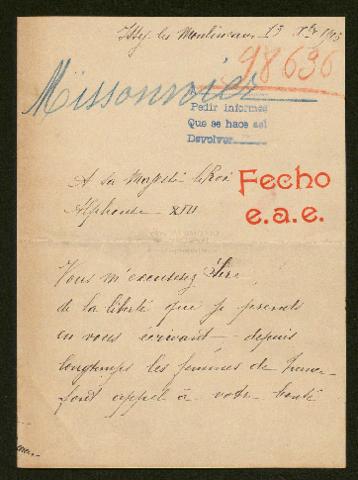 Issy les Moulineaux 13 Xbre 1915
98636
Missonnier
Pedir informes
Que se hace asi
Devolver
A sa Majesté le Roi
Alphonse XIII
Fecho
e.a.e.
Vous m'excuserez Sire
de la liberté que je prends
en vous écrivant depuis
longtemps les femmes de France
font appel à votre bonté